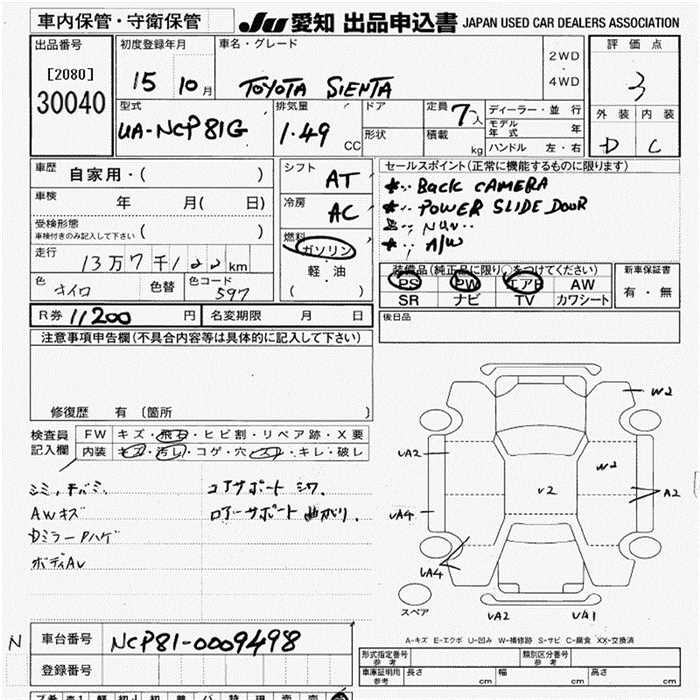 車内保管・守衛保管
JU 愛知 出品申込書 JAPAN USED CAR DEALERS ASSOCIATION
出品番号
[2080]
30040
初度登録年月
15 10月
車名・グレード
TOYOTA SIENTA
2WD
・
4WD
評価点
3
外装 内装
D C
型式
UA-NCP81G
排気量
1.49 CC
ドア
形状
定員 7人
積載 kg
ディーラー・並行
モデル年式 年
ハンドル 左・右
車歴 自家用・( )
車検 年 月( 日)
受検形態
車検付きのみ記入して下さい ( )
走行 13万7千1 km
色
色替
色コード
597
シフト AT
冷房 AC
燃料
ガソリン
・
軽油
( )
セールスポイント(正常に機能するものに限ります)
BACK CAMERA
POWER SLIDE DOOR
A/W
装備品(純正品に限り○をつけてください)
PS PW エアB AW
SR ナビ TV カワシート
新車保証書
有・無
R券 11200 円
名変期限 月 日
後日品
注意事項申告欄(不具合内容等は具体的に記入して下さい)
修復歴 有 〔箇所 〕
検査員記入欄
FW キズ・飛石・ヒビ割・リペア跡・X要
内装 キズ・汚レ・コゲ・穴・スレ・キレ・破レ
コアサポート シワ
AWキズ
ロアーサポート 曲がり.
DミラーPハゲ
W2
UA2
W2
U2
A2
UA4
UA4
スペア
UA2 UA1
A-キズ E-エクボ U-凹み W-補修跡 S-サビ C-腐食 XX-交換済
N
車台番号 NCP81-0009498
登録番号
形式指定番号 参考
類別区分番号 参考
車庫証明用 参考
長さ cm
幅 cm
高さ cm